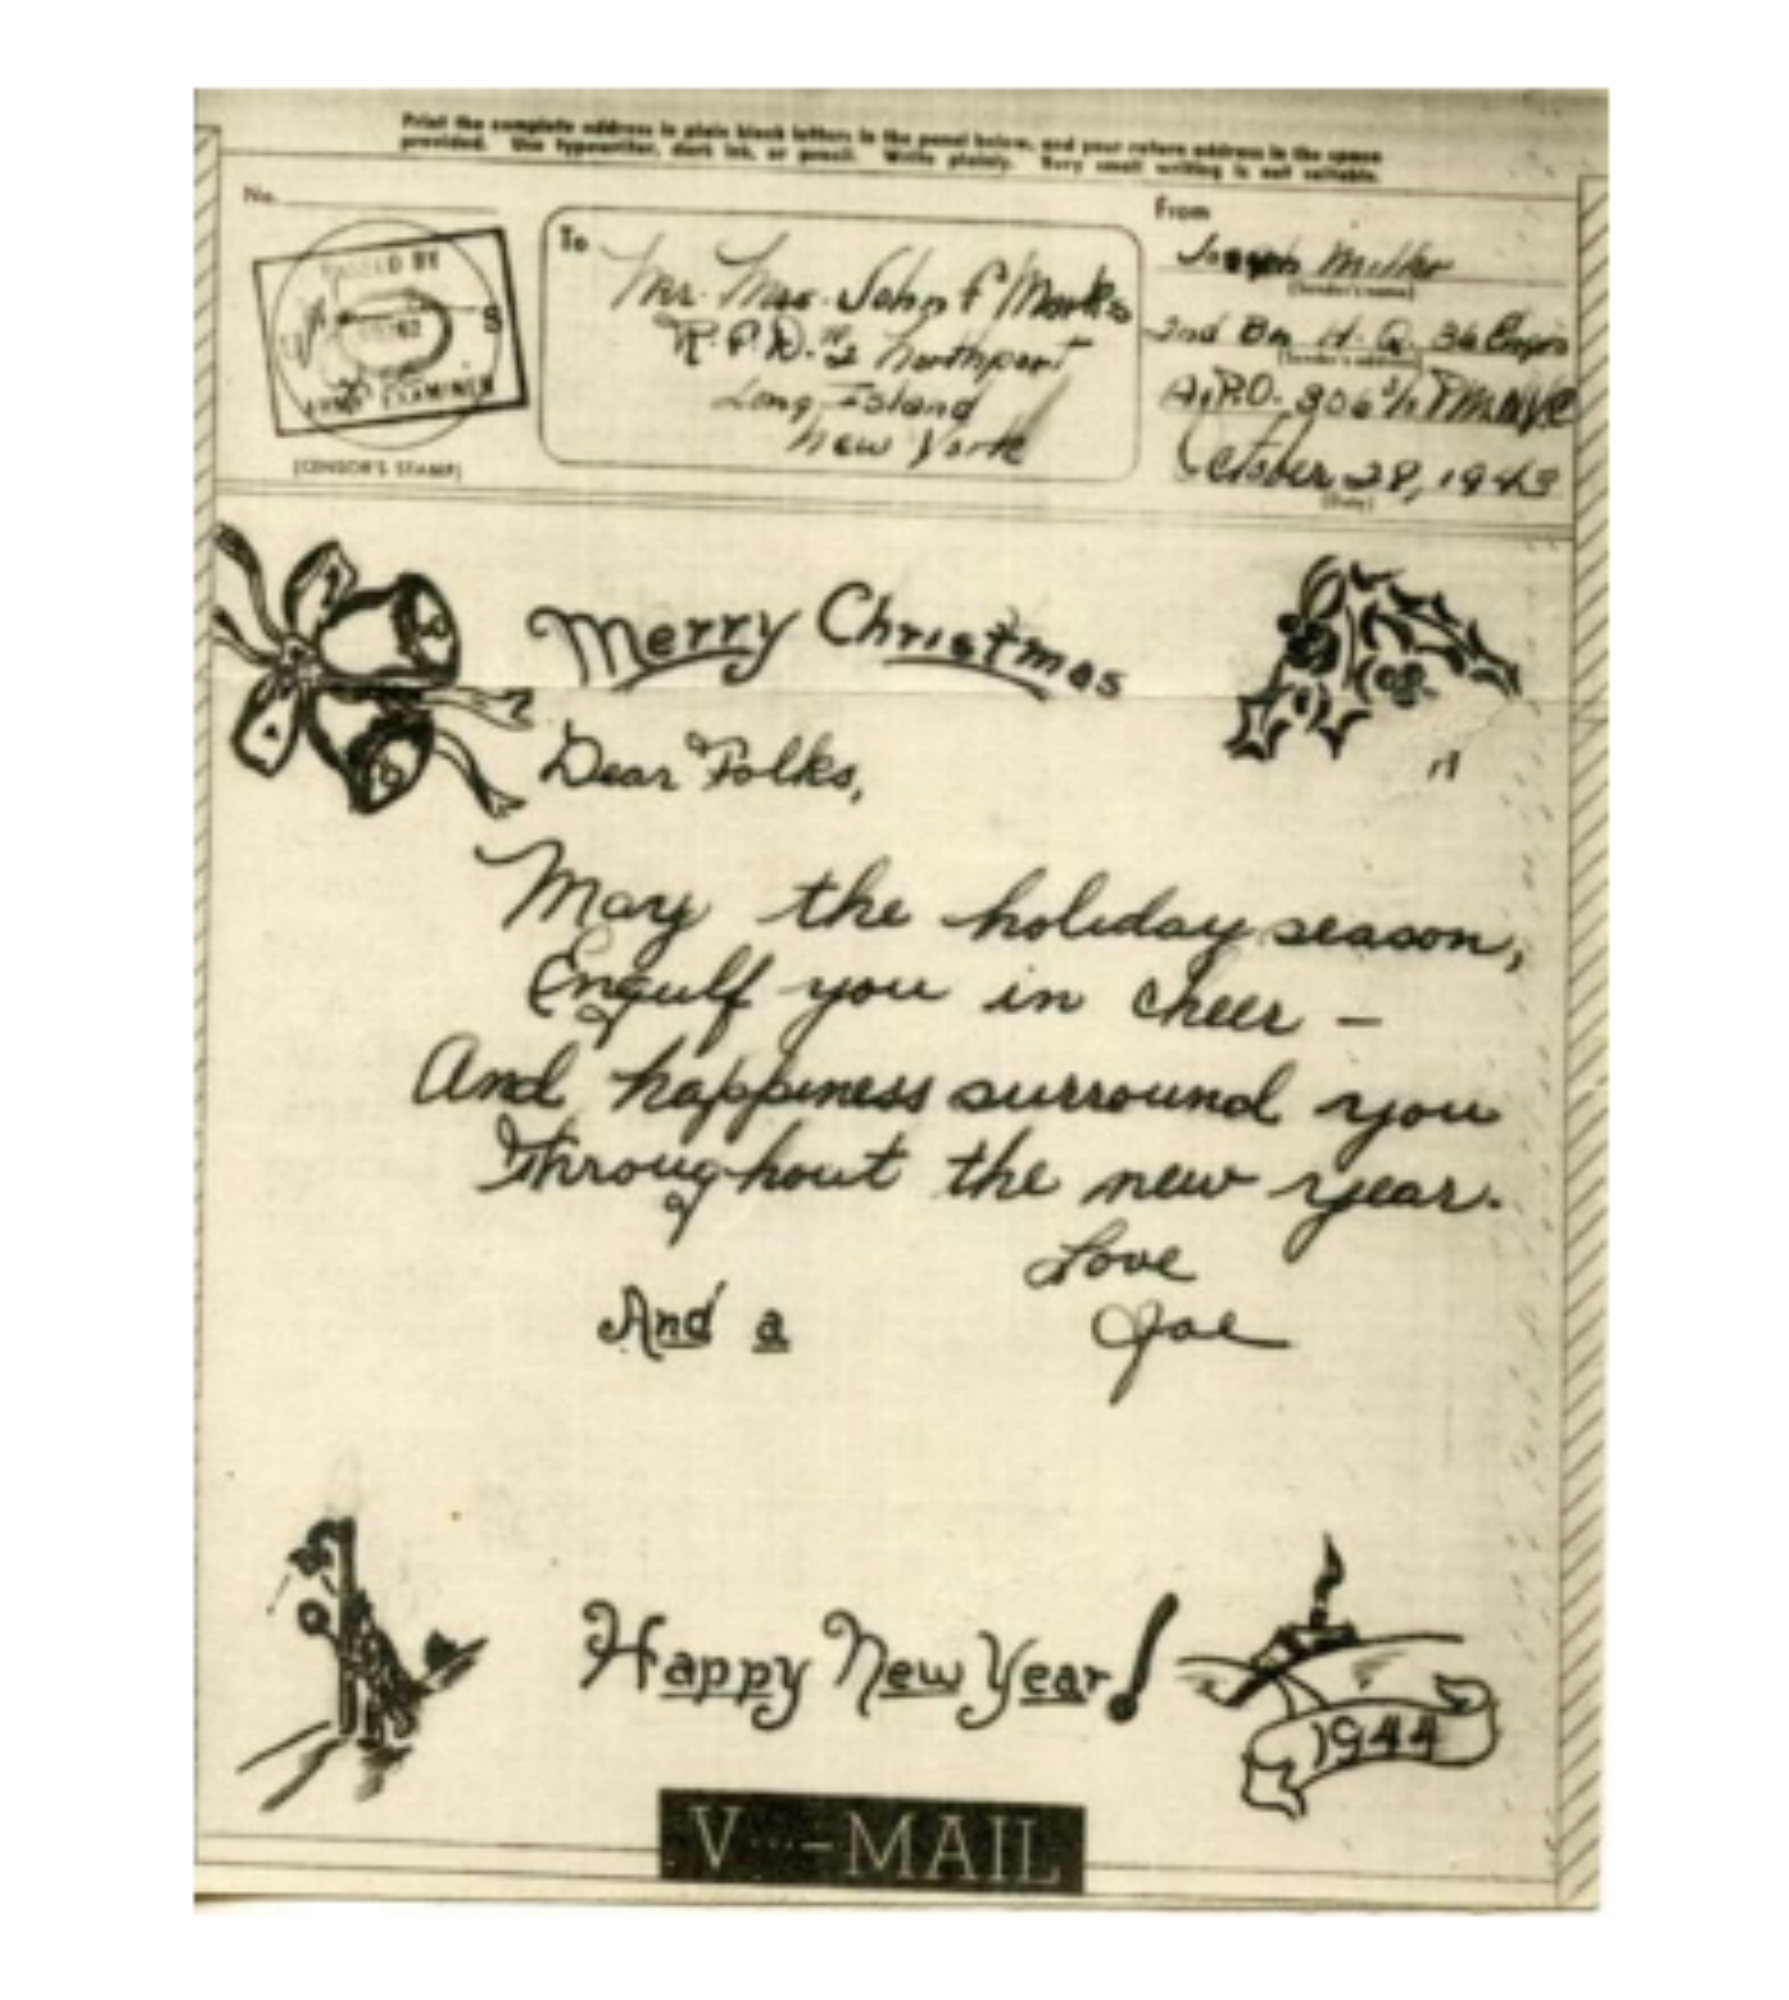 Print the complete address in plain block letters in the panel below, and your return address in the space
provided. Use typewriter, dark ink, or pencil. Write plainly. Very small writing is not suitable.
No.
PASSED BY
S
ARMY EXAMINER
[CENSOR'S STAMP]
To
Mr. Mrs. John F Marks
R.F.D. #2 Northport
Long Island
New York
From
Joseph Miller
(Sender's name)
2nd Bn H. Q. 36 Engrs
(Sender's address)
A.P.O. 306 % P.M. N.Y.C
October 28, 1943
(Date)
Merry Christmas
Dear Folks,
May the holiday season,
Engulf you in cheer –
And happiness surround you
Throughout the new year.
Love
And a
Joe
Happy New Year!
1944
V...-MAIL